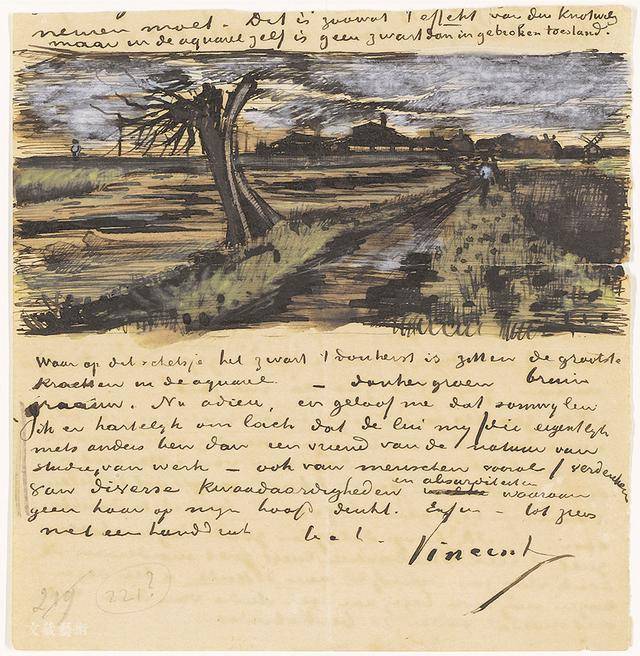 nemen moet. Dit is zoowat 't effekt van den Knotwilg
maar in de aquarel zelf is geen zwart dan in gebroken toestand.
Waar op dit schetsje het zwart 't donkerst is zitten de grootste
krachten in de aquarel – donkergroen bruin
graauw. Nu adieu, en geloof me dat somwijlen
ik er hartelijk om lach dat de lui mij (die eigentlijk
niets anders ben dan een vriend van de natuur van
studie, van werk – ook van menschen vooral) verdenken
van diverse kwaadaardigheden en absurditeiten waaraan
geen haar op mijn hoofd denkt. Enfin – tot ziens
met een handdruk
Vincent
219 221?